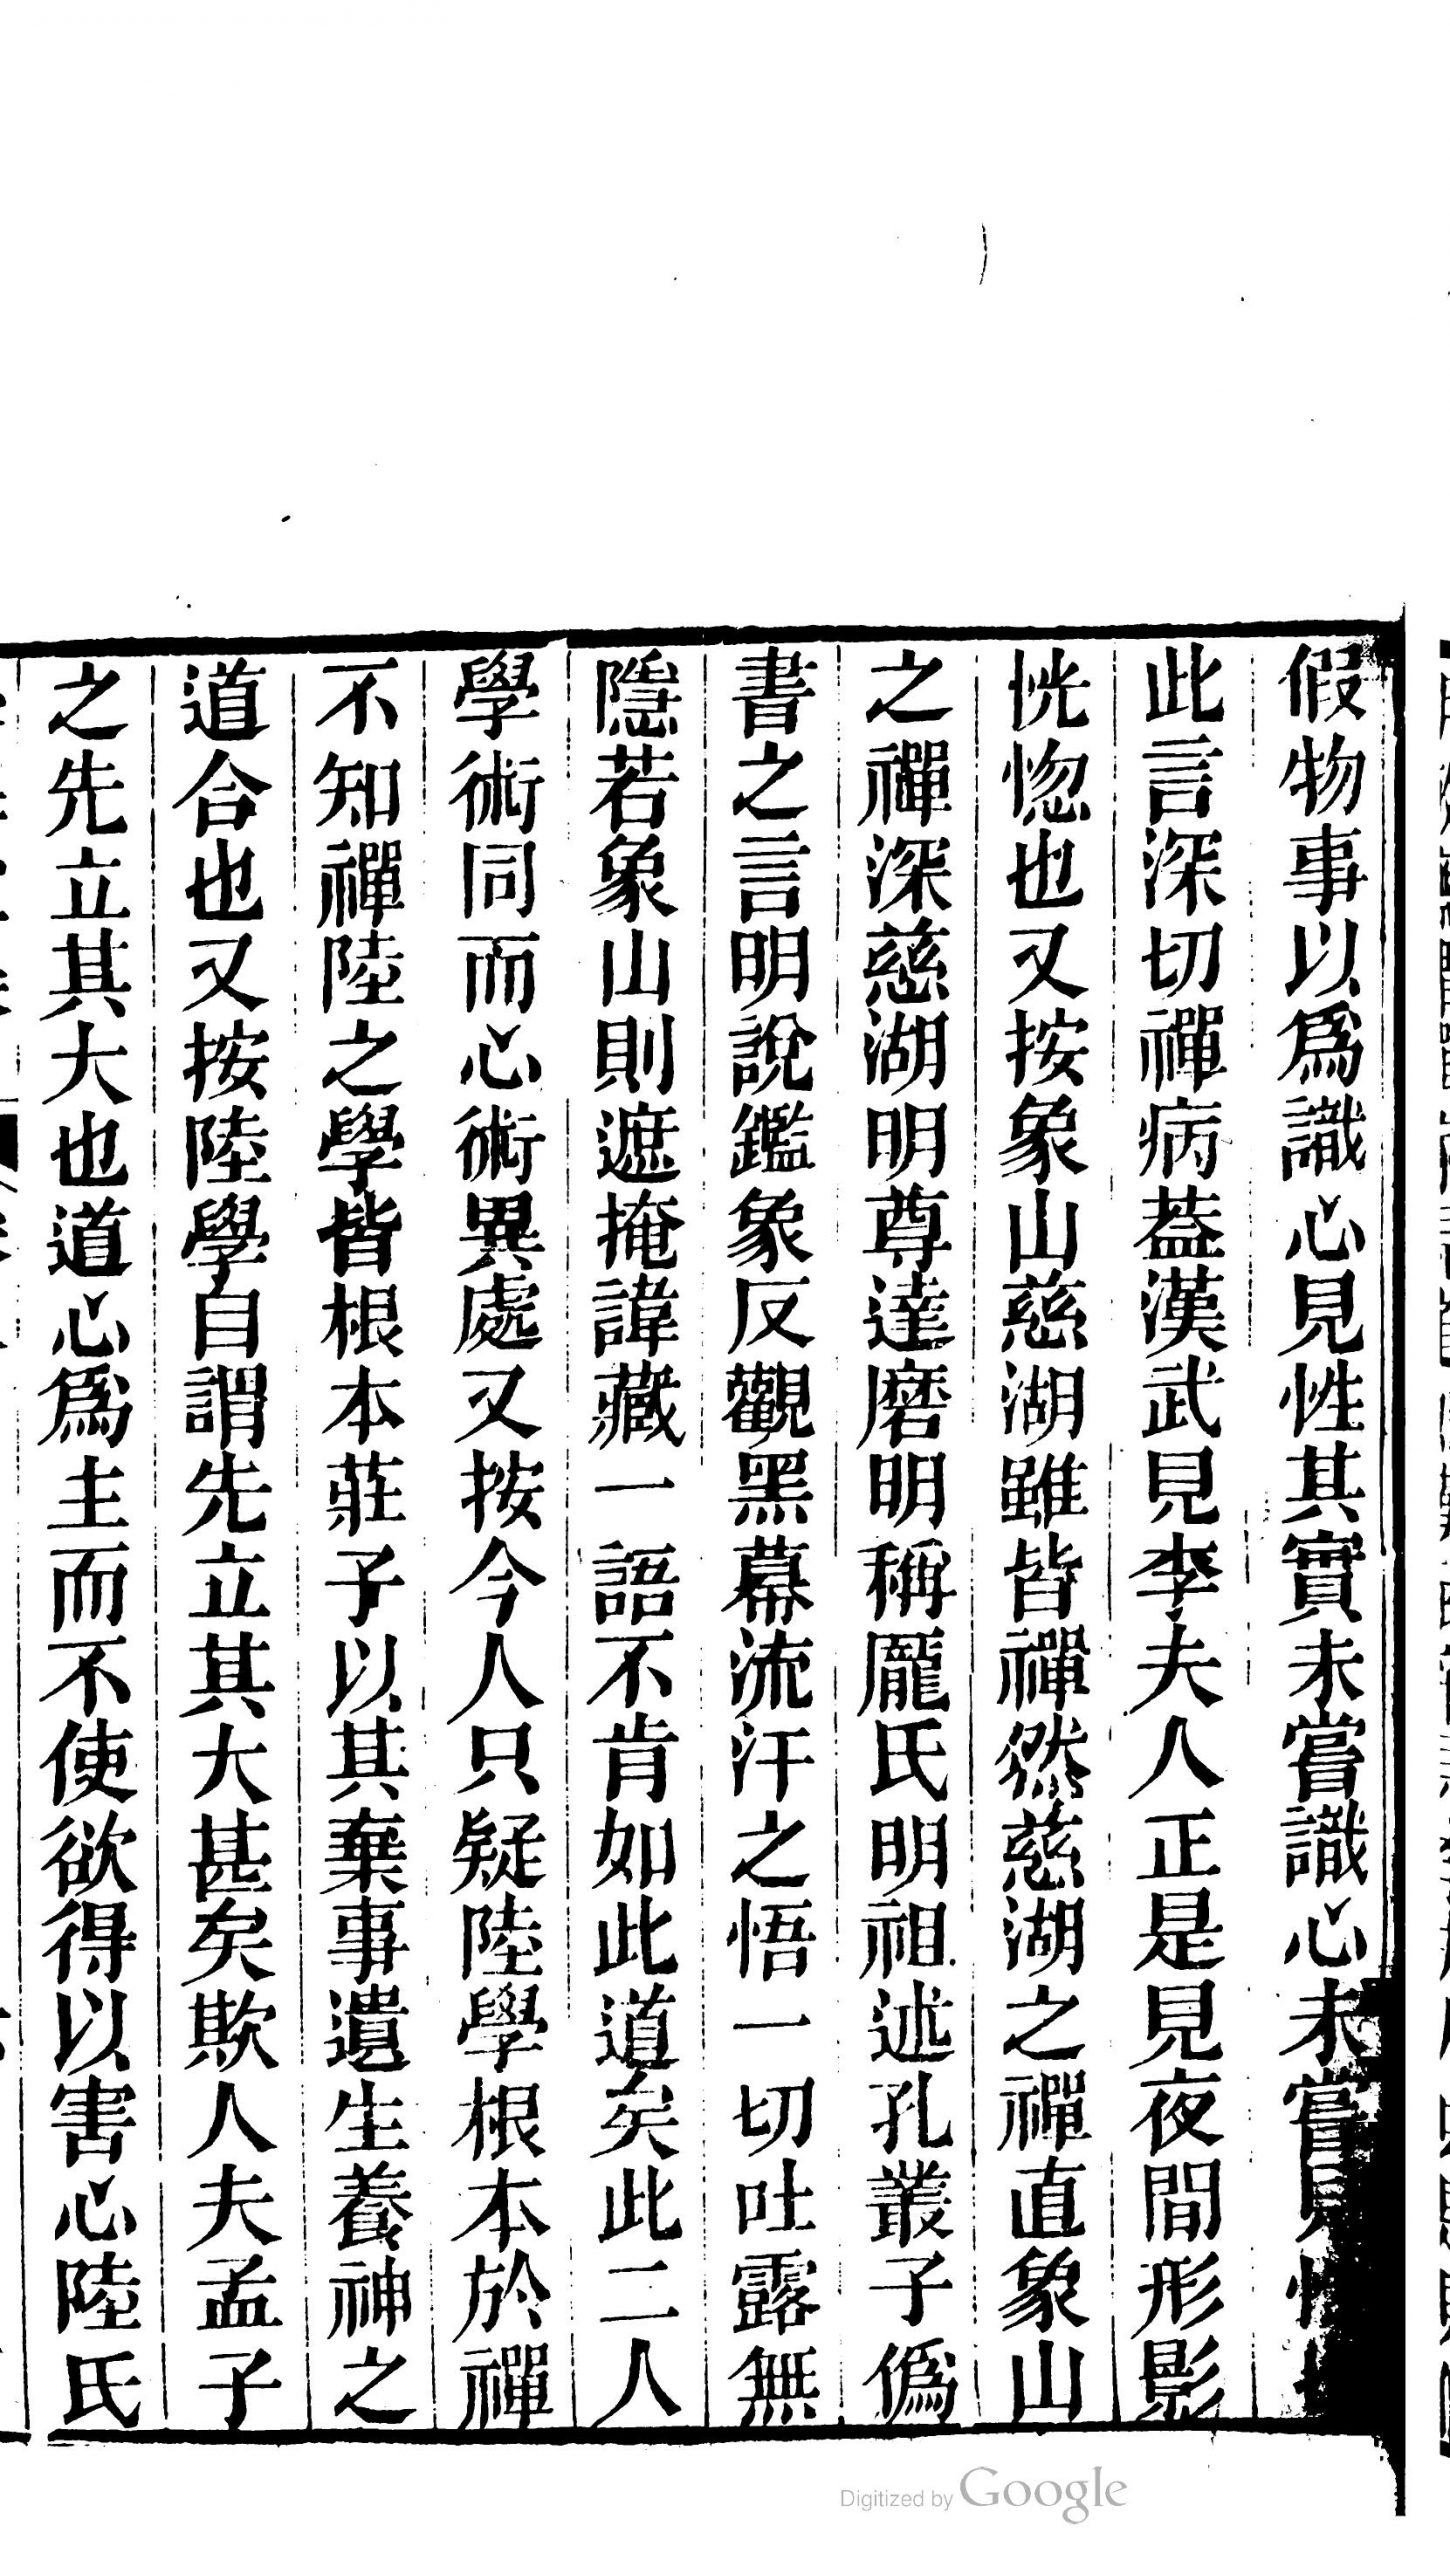 假物事以爲識心見性其實未嘗識心未嘗見性
此言深切禪病葢漢武見李夫人正是見夜間形影
恍惚也又按象山慈湖雖皆禪然慈湖之禪直象山
之禪深慈湖明尊達磨明稱龐氏明祖述孔叢子僞
書之言明說鑑象反觀黑幕流汗之悟一切吐露無
隱若象山則遮掩諱藏一語不肯如此道矣此二人
學術同而心術異處又按今人只疑陸學根本於禪
不知禪陸之學皆根本莊子以其棄事遺生養神之
道合也又按陸學自謂先立其大甚矣欺人夫孟子
之先立其大也道心爲主而不使欲得以害心陸氏
Digitized by Google